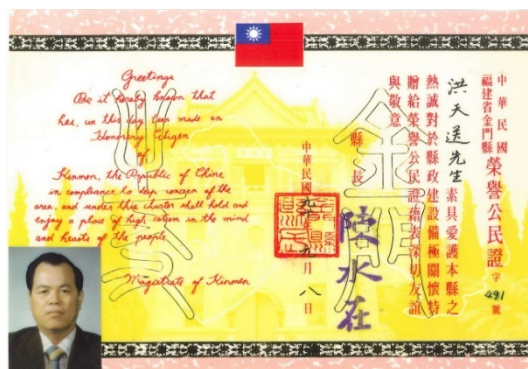 Greetings
Be it hereby known that
has, on this day been made an
Honorary Citizen
of
Kinmen, the Republic of China
in compliance to deep concern of the
area, and under this charter shall hold and
enjoy a place of high esteem in the mind
and hearts of the people
Magistrate of Kinmen
中華民國
福建省金門縣
榮譽公民證 字 491 號
洪天送先生素具愛護本縣之
熱誠對於縣政建設備極關懷特
贈給榮譽公民證藉表深切友誼
與敬意
縣長
陳水在
中華民國 九 月 八 日
金門